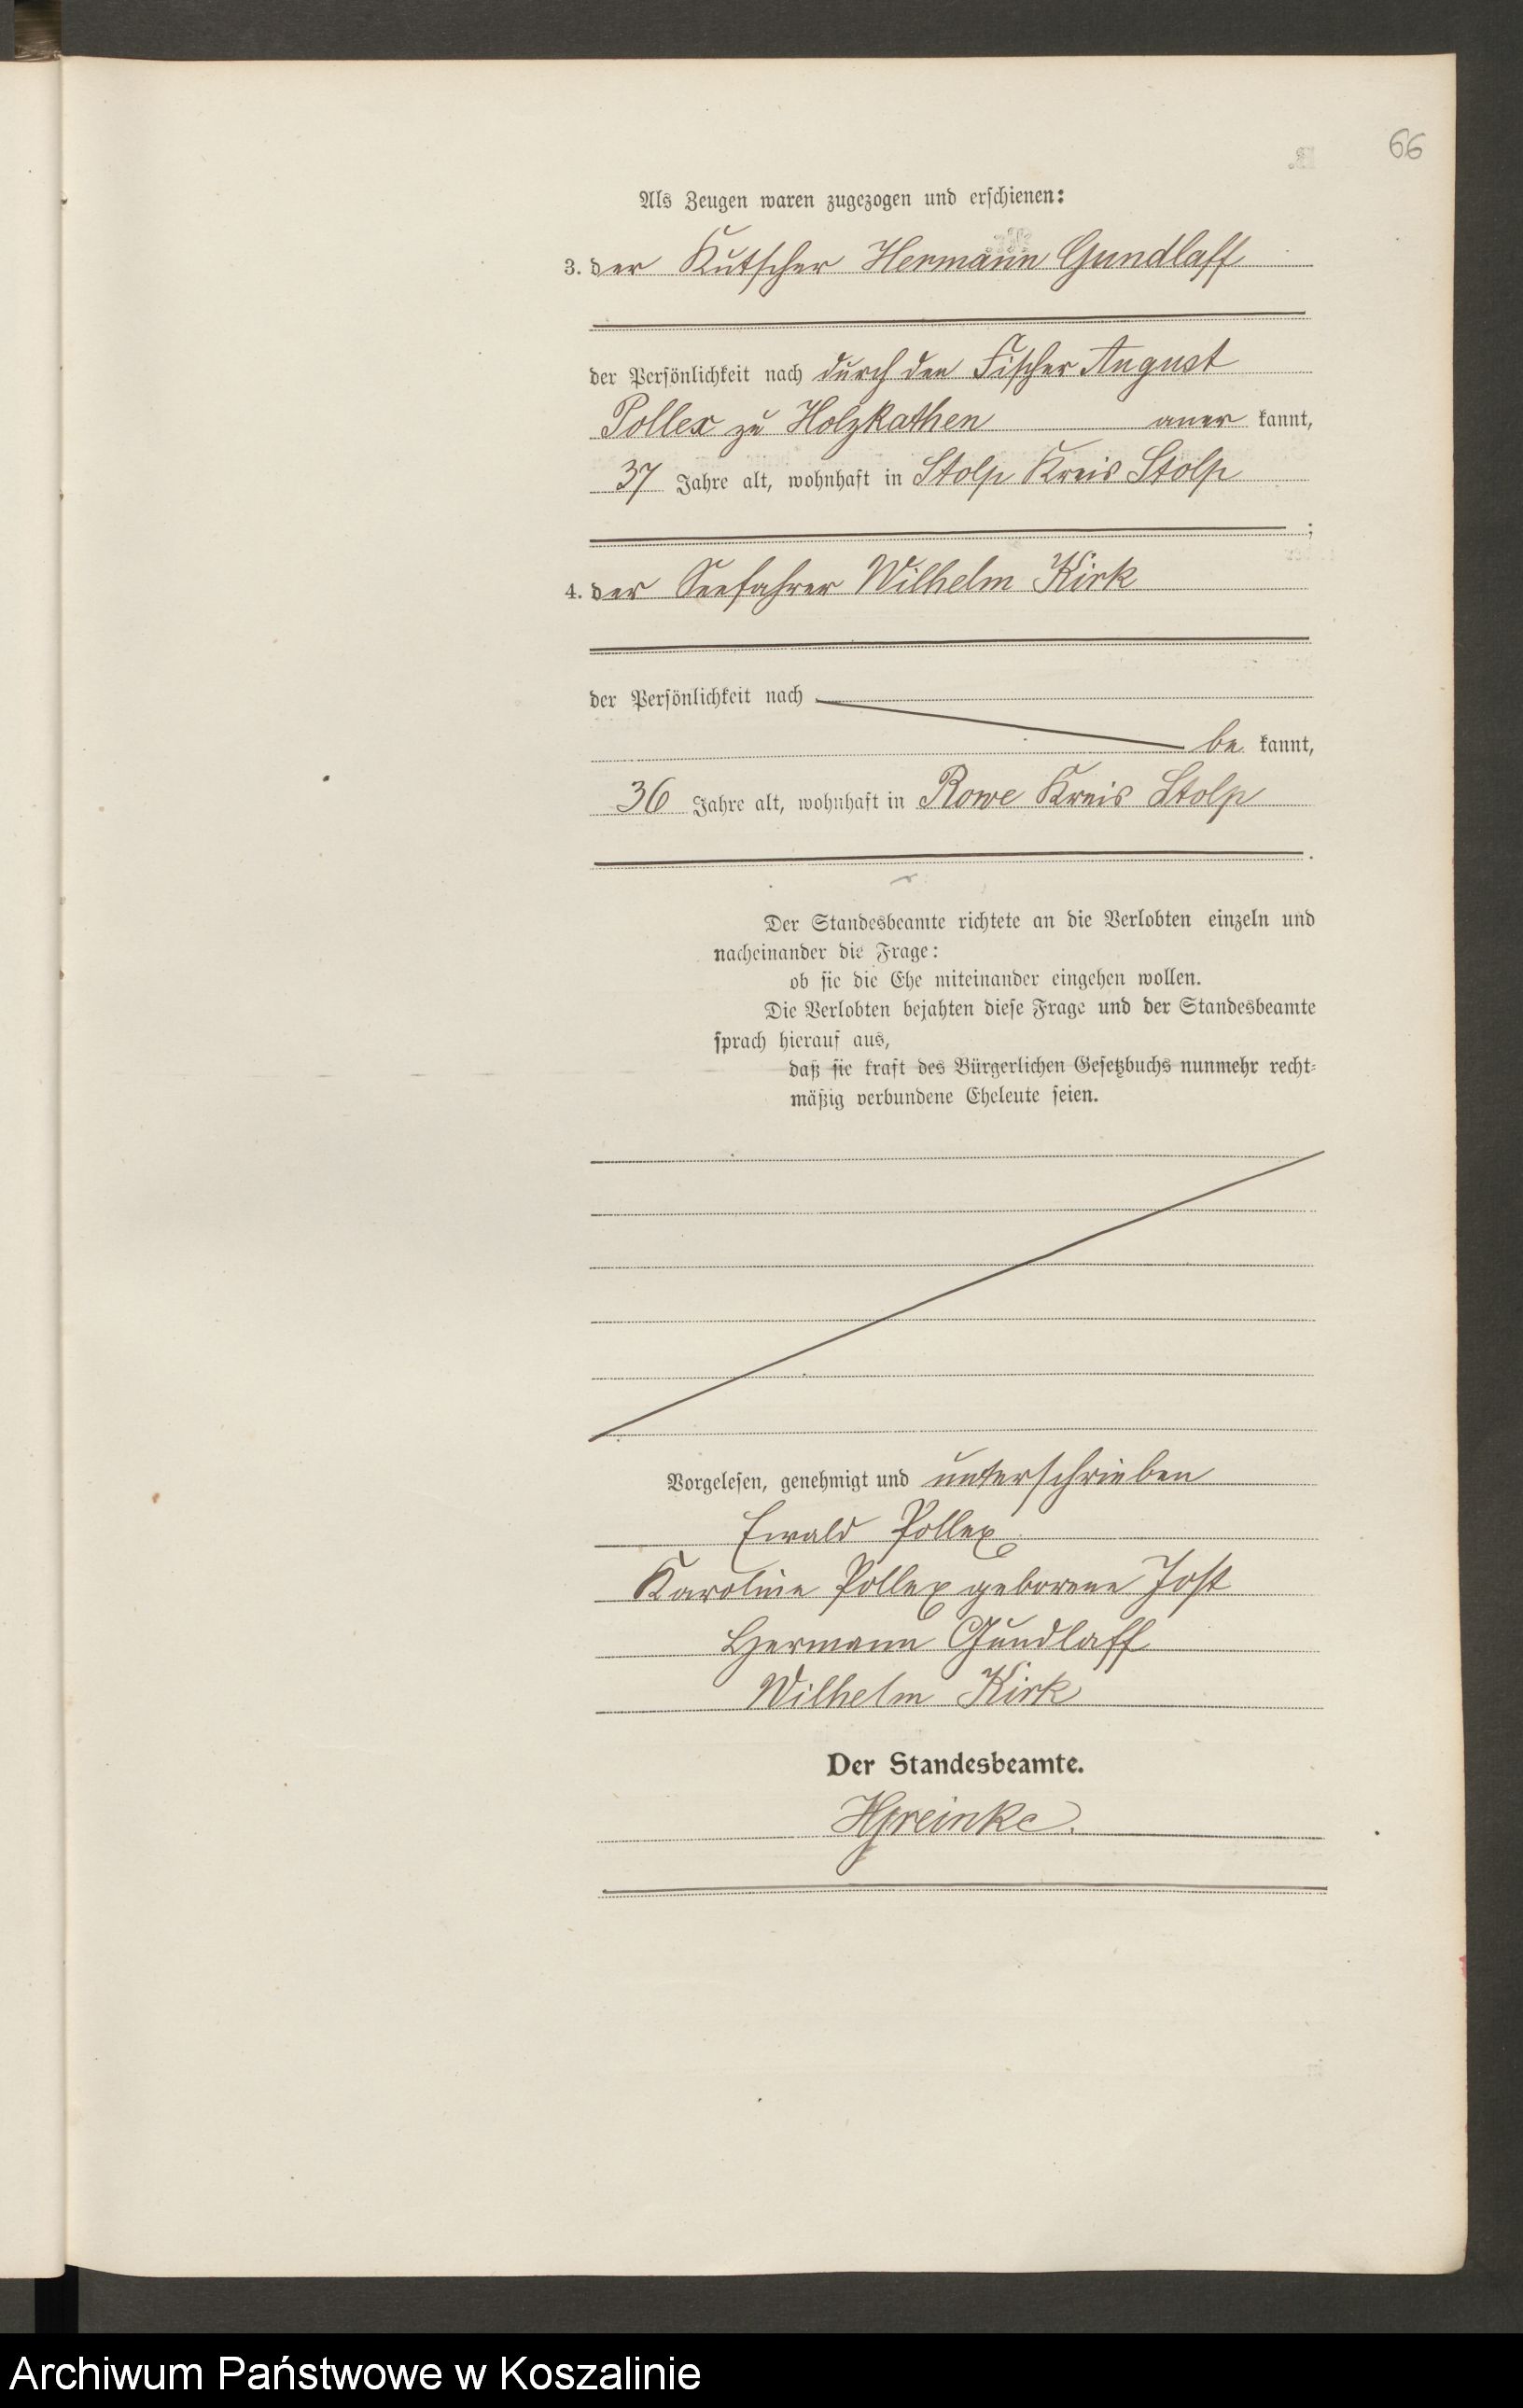 66
Als Zeugen waren zugezogen und erschienen:
3. der Kutscher Hermann Gundlaff
der Persönlichkeit nach durch den Fischer August
Pollex zu Holzkathen aner kannt,
37 Jahre alt, wohnhaft in Stolp Kreis Stolp
;
4. der Seefahrer Wilhelm Kirk
der Persönlichkeit nach
be kannt,
36 Jahre alt, wohnhaft in Rowe Kreis Stolp
.
Der Standesbeamte richtete an die Verlobten einzeln und
nacheinander die Frage:
ob sie die Ehe miteinander eingehen wollen.
Die Verlobten bejahten diese Frage und der Standesbeamte
sprach hierauf aus,
daß sie kraft des Bürgerlichen Gesetzbuchs nunmehr recht-
mäßig verbundene Eheleute seien.
Vorgelesen, genehmigt und unterschrieben
Ewald Pollex
Karoline Pollex geborene Jost
Hermann Gundlaff
Wilhelm Kirk
Der Standesbeamte.
Archiwum Państwowe w Koszalinie